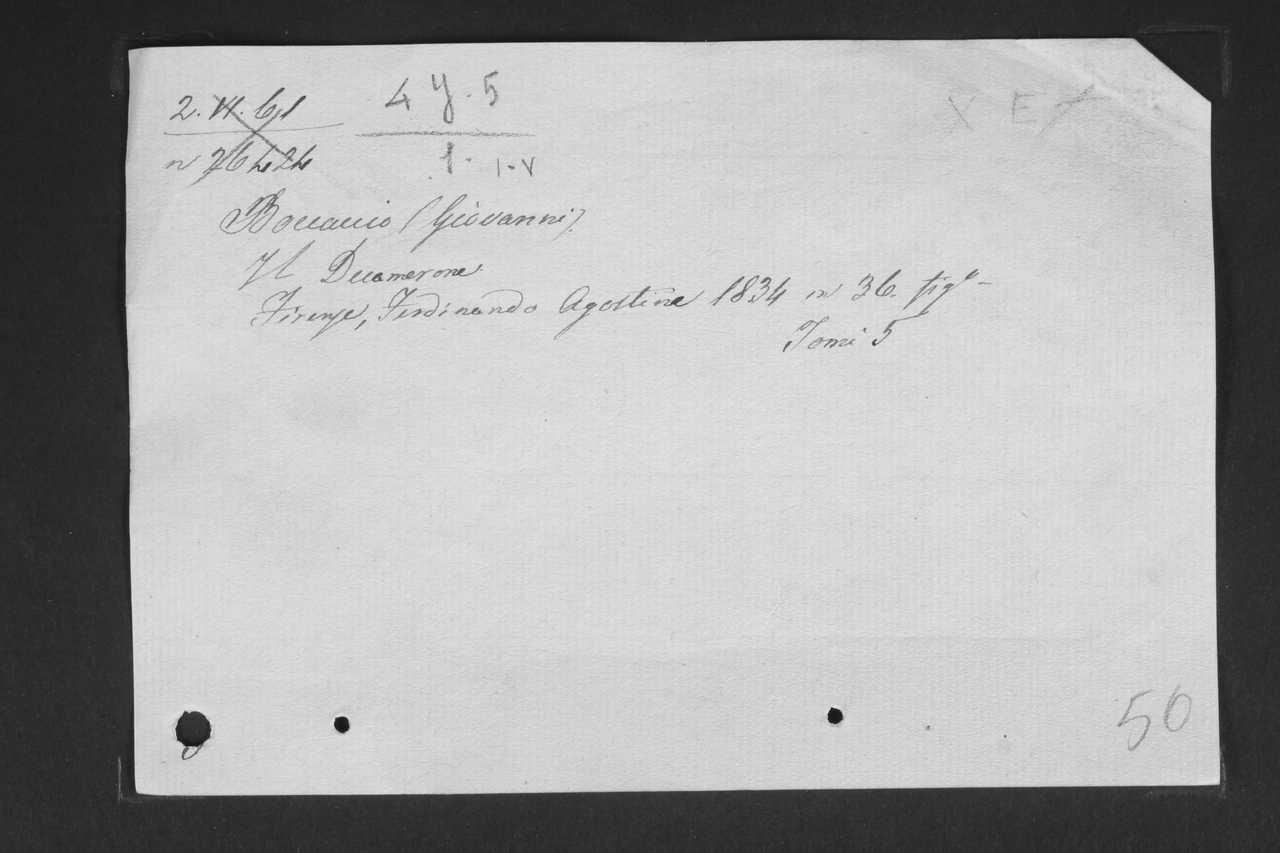 4 Y. 5
n 26424
1. I-V
Boccaccio (Giovanni).
Il Decamerone
Firenze, Ferdinando Agostini 1834 in 36. fig.e
Tomi 5
50